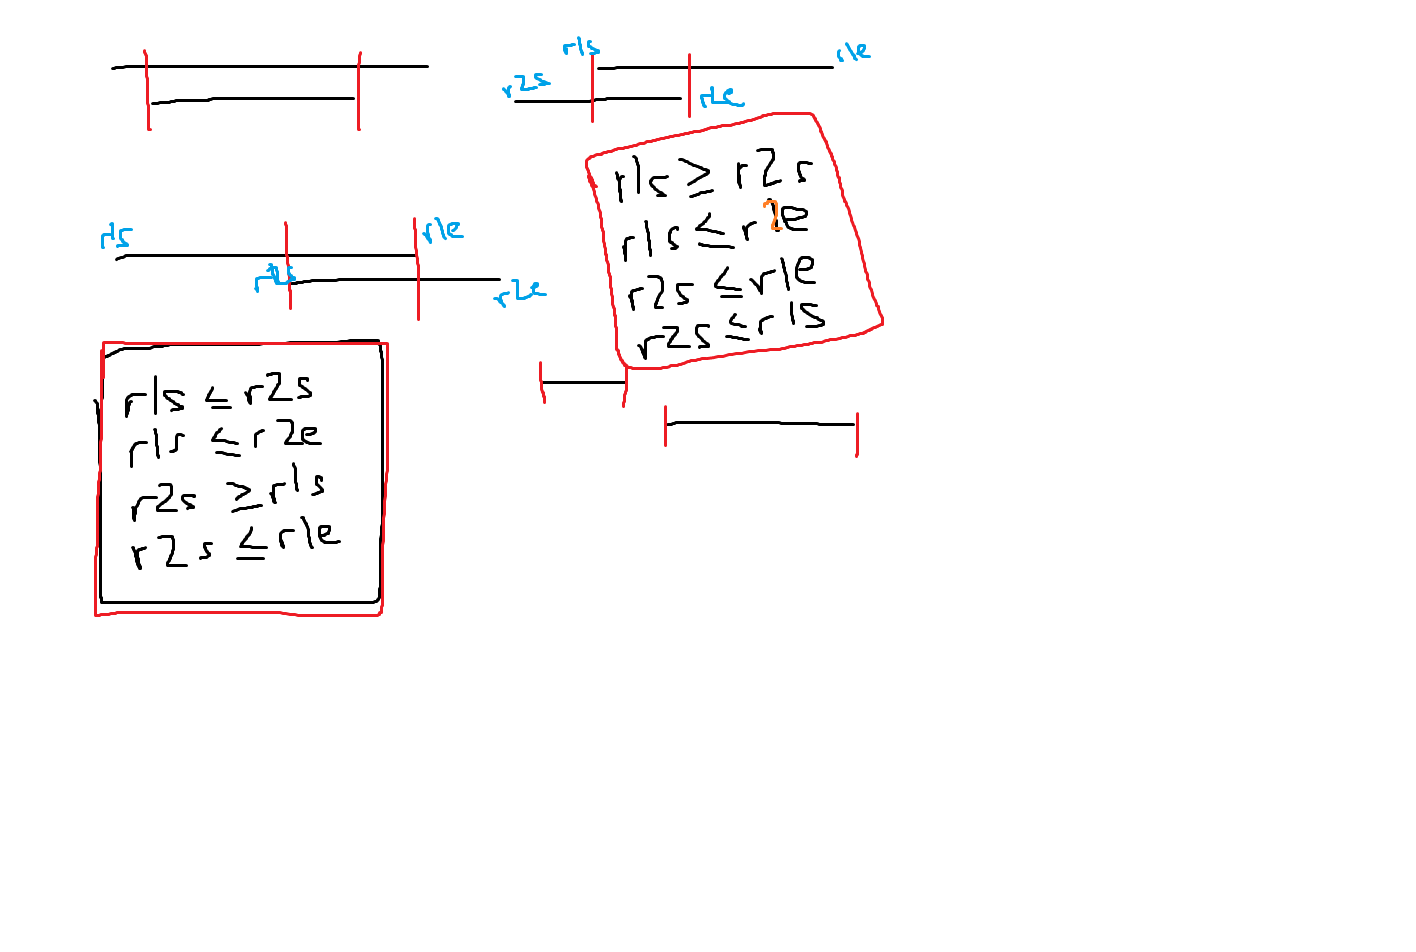 r1s
r1e
r2s
r2e
r1s ≥ r2s
r1s ≤ r2e
r2s ≤ r1e
r2s ≤ r1s
r1s
r1e
r2s
r2e
r1s ≤ r2s
r1s ≤ r2e
r2s ≥ r1s
r2s ≤ r1e